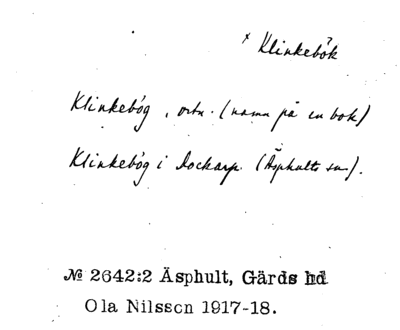 × Klinkebök
Klinkebög, ortn. (namn på en bok)
Klinkebög i Dockarp. (Äsphults sn).
№ 2642:2 Äsphult, Gärds hd
Ola Nilsson 1917-18.